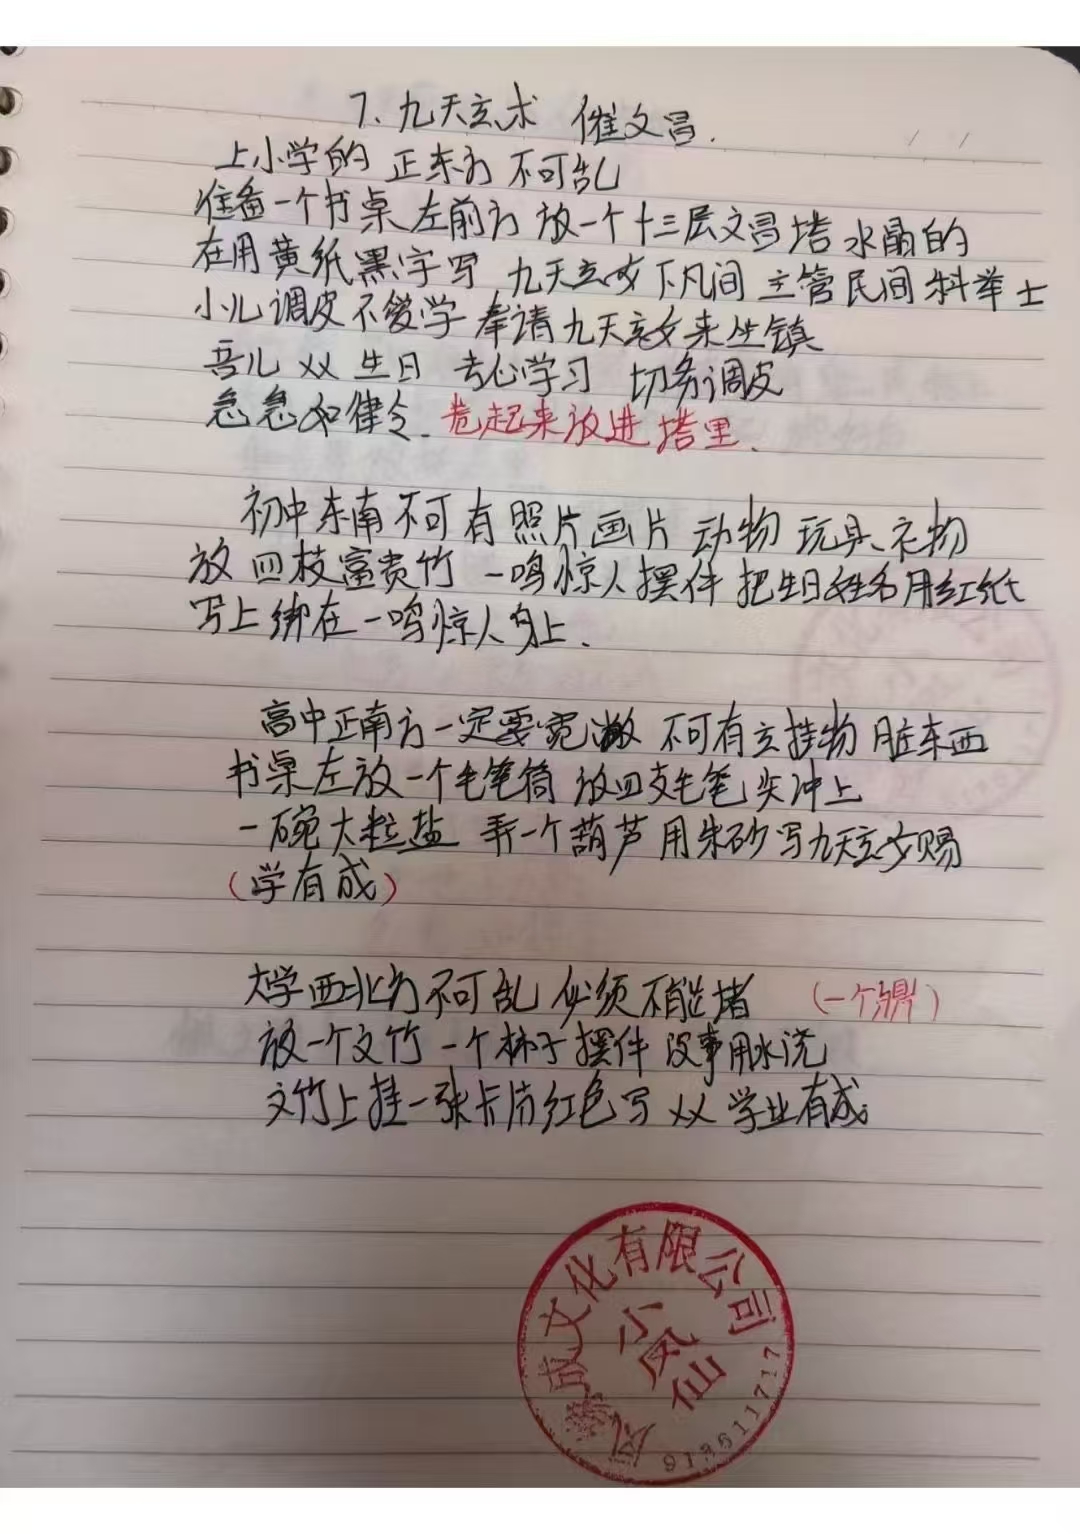 7、九天玄术 催文昌.
上小学的 正东方 不可乱
准备一个书桌 左前方 放一个十三层文昌塔 水晶的
在用黄纸黑字写 九天玄女下凡间 主管民间科举士
小儿调皮不爱学 奉请九天玄女来坐镇
吾儿 XX 生日 专心学习 切务调皮
急急如律令. 卷起来放进塔里.
初中东南不可有照片画片 动物 玩具、衣物
放四枝富贵竹 一鸣惊人摆件 把生日姓名用红纸
写上绑在一鸣惊人身上.
高中正南方一定要宽敞 不可有立挂物 脏东西
书桌左放一个毛笔筒 放四支毛笔 尖冲上
一碗大粒盐 弄一个葫芦 用朱砂写九天玄女赐
(学有成)
大学西北方不可乱 必须不能堵 (一个鼎)
放一个文竹 一个柿子摆件 没事用水浇
文竹上挂一张卡片红色写 XX 学业有成
成文化有限公司
小凤仙